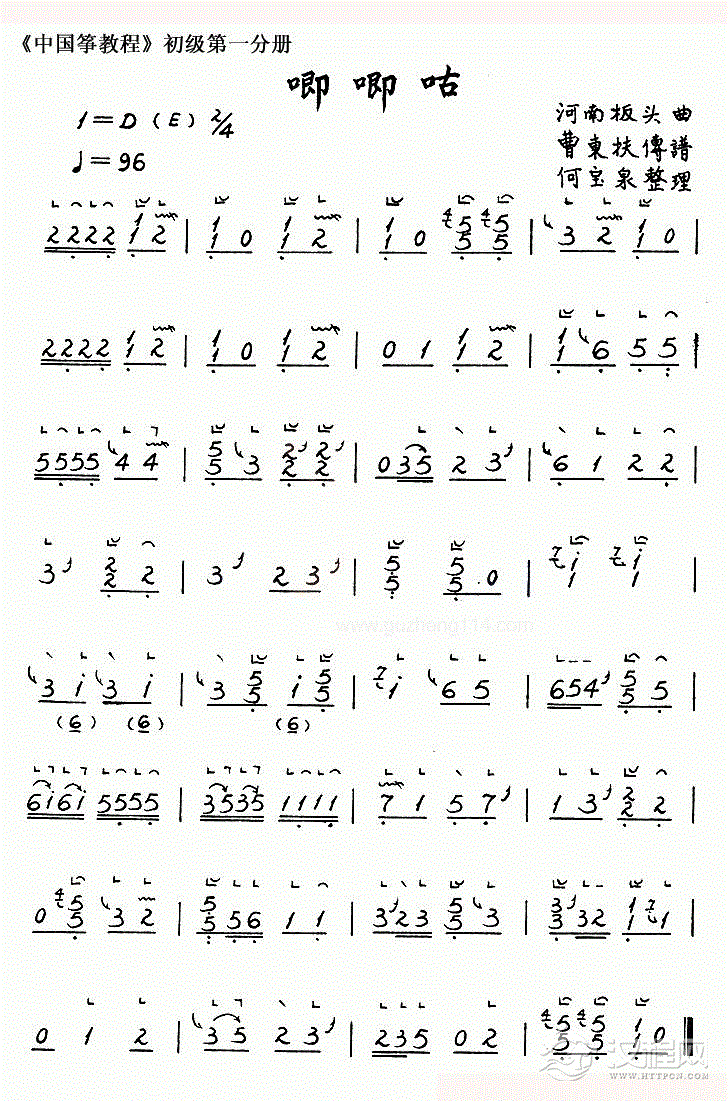 《中国筝教程》初级第一分册
唧唧咕
1=D(E) 2/4
河南板头曲
♩=96
曹東扶傳譜
何宝泉整理
2222 1/1 2 | 1/1 0 1/1 2 | 1/1 0 5/5 5/5 | 3 2 1/1 0 |
2222 1/1 2 | 1/1 0 1/1 2 | 0 1 1/1 2 | 1/1 6 5 5 |
5555 4 4 | 5/5 3 2/2 2/2 | 035 2 3 | 6 1 2 2 |
3 2/2 2 | 3 2 3 | 5/5 5/5.0 | i/1 i/1 |
3 i 3 i | 3 5/5 i 5/5 | i 6 5 | 654 5/5 5 |
(6) (6) (6)
6i6i 5555 | 3535 1111 | 7 1 5 7 | 1 3 2/2 2 |
0 5/5 3 2 | 5/5 56 1 1 | 323 5/5 3 | 3/3 32 1/1 1 |
0 1 2 | 3 5 2 3 | 235 0 2 | 5/5 5/5 1/1 0
www.guzheng114.com
汉程网
WWW.HTTPCN.COM